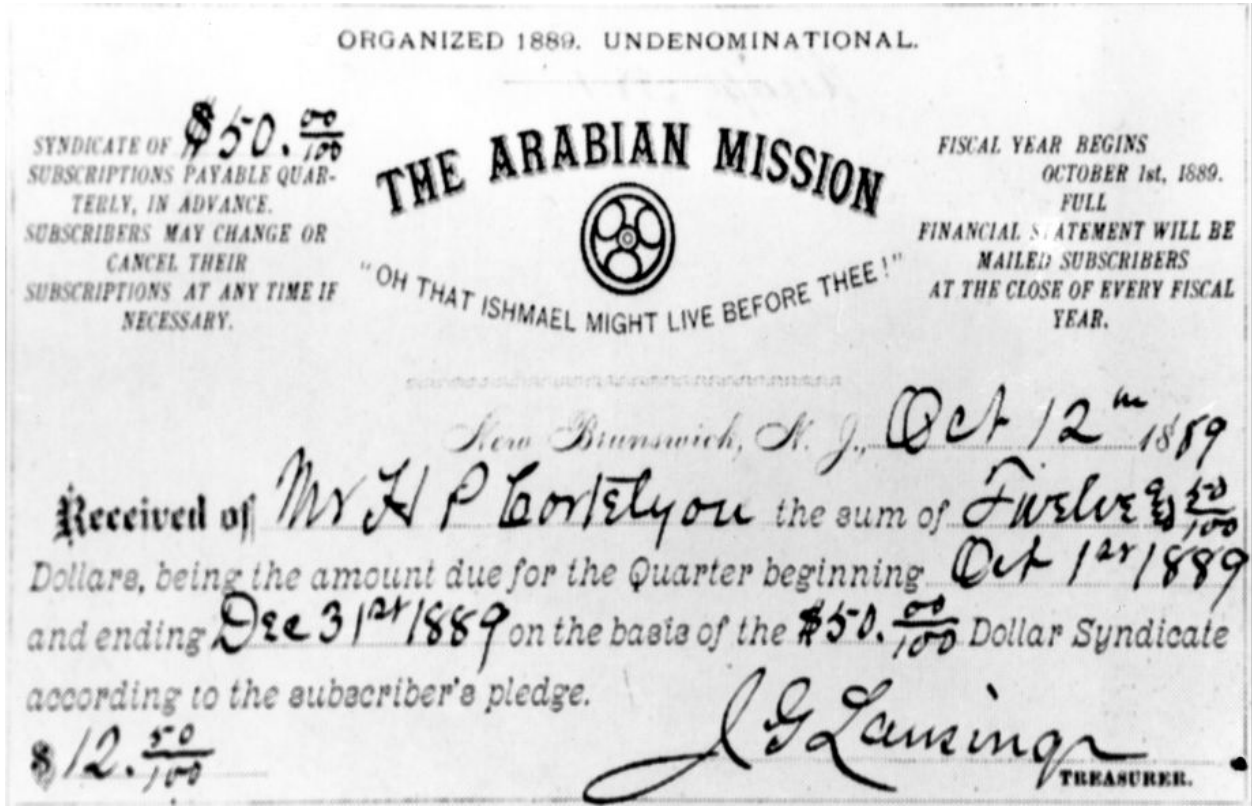 ORGANIZED 1889. UNDENOMINATIONAL.
SYNDICATE OF $50. 00/100
SUBSCRIPTIONS PAYABLE QUAR-
TERLY, IN ADVANCE.
SUBSCRIBERS MAY CHANGE OR
CANCEL THEIR
SUBSCRIPTIONS AT ANY TIME IF
NECESSARY.
THE ARABIAN MISSION
"OH THAT ISHMAEL MIGHT LIVE BEFORE THEE!"
FISCAL YEAR BEGINS
OCTOBER 1st, 1889.
FULL
FINANCIAL STATEMENT WILL BE
MAILED SUBSCRIBERS
AT THE CLOSE OF EVERY FISCAL
YEAR.
New Brunswick, N. J., Oct 12th 1889
Received of Mr H P Cortelyou the sum of Twelve & 50/100
Dollars, being the amount due for the Quarter beginning Oct 1st 1889
and ending Dec 31st 1889 on the basis of the $50. 00/100 Dollar Syndicate
according to the subscriber's pledge.
$12. 50/100
J G Lansing
TREASURER.